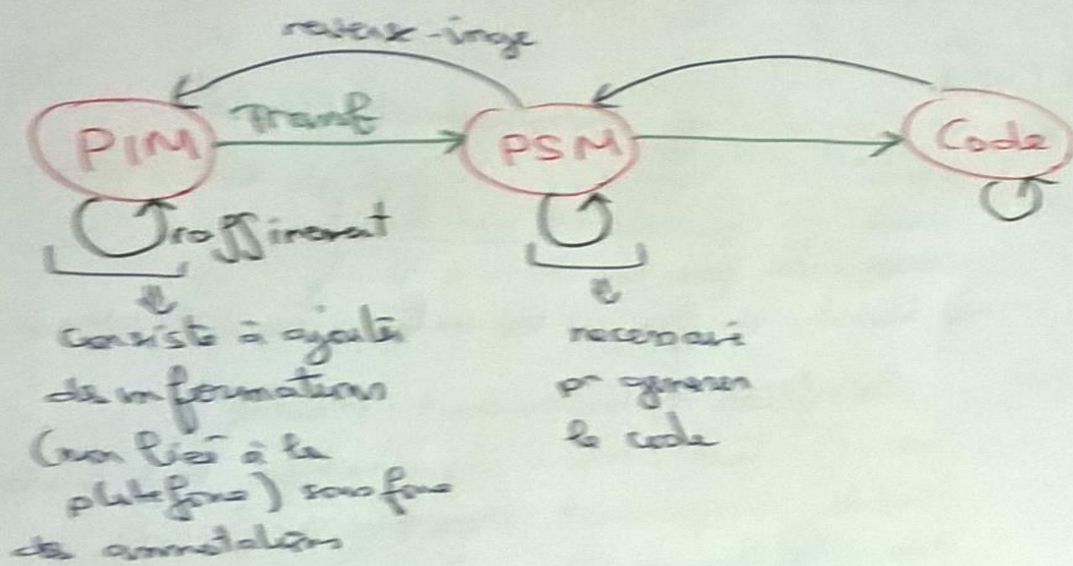 reverse-inge
Transf
PIM
PSM
Code
raffinement
consiste à ajouter
des informations
(non liés à la
plateforme) sous forme
des annotations
necessaire
pr generer
le code